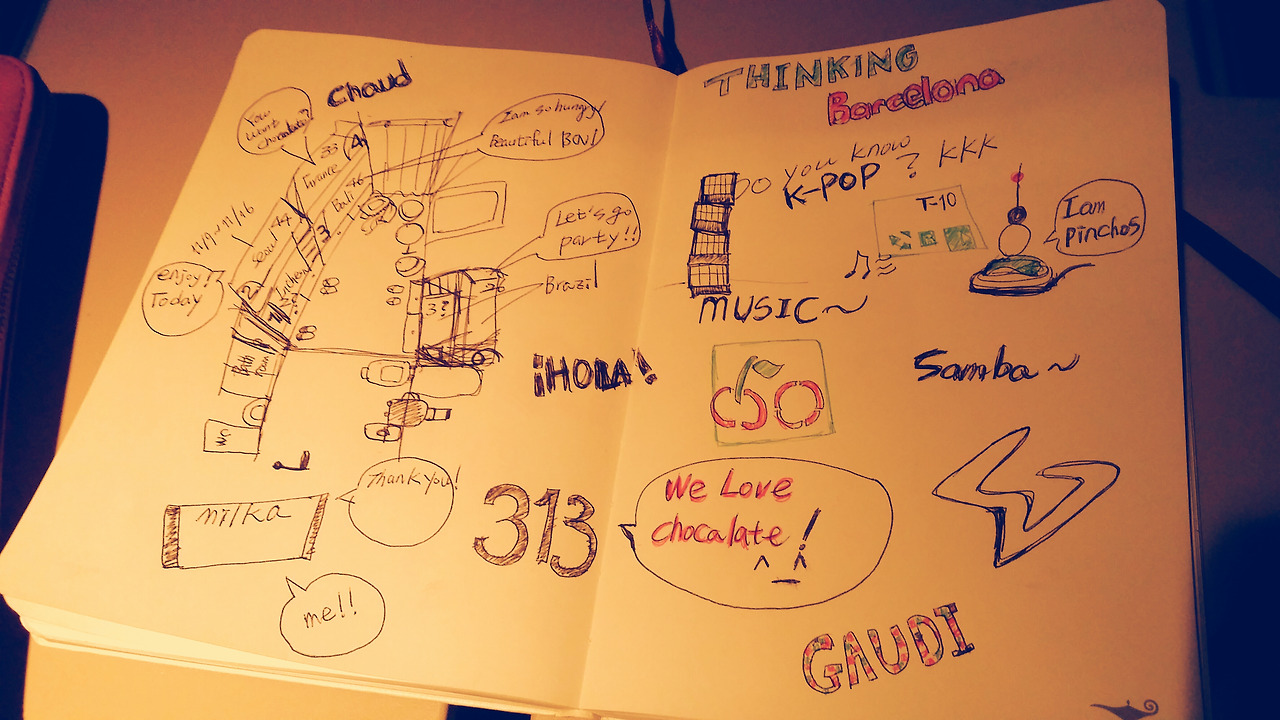 chaud
You
want
chocolate?
I am so hungry
Beautiful BCN!
33
France
46
Bali
Let's go
party!!
11/9~11/16
44
Seoul
3
enjoy!
Today
2
kitchen
Brazil
Bath
Room
WC
¡HOLA!
Thank you!
milka
313
me!!
THINKING
Barcelona
DO you know
K-POP ? KKK
T-10
I am
pinchos
MUSIC~
Samba~
We Love
chocalate!
GAUDI